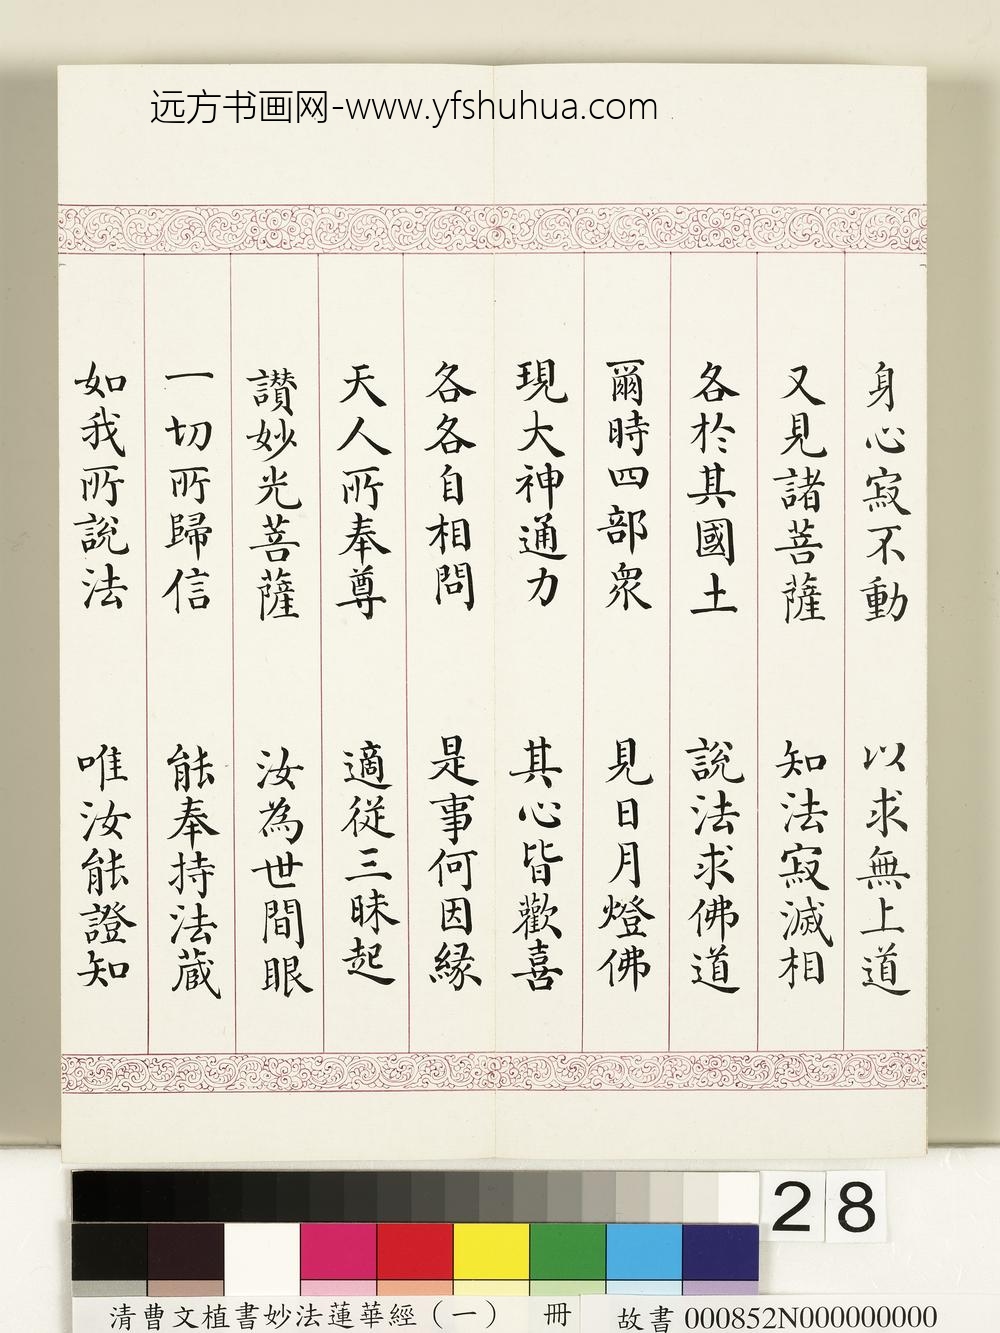 远方书画网-www.yfshuhua.com
身心寂不動 以求無上道
又見諸菩薩 知法寂滅相
各於其國土 說法求佛道
爾時四部眾 見日月燈佛
現大神通力 其心皆歡喜
各各自相問 是事何因緣
天人所奉尊 適從三昧起
讚妙光菩薩 汝為世間眼
一切所歸信 能奉持法藏
如我所說法 唯汝能證知
28
清曹文植書妙法蓮華經（一） 冊 故書 000852N000000000